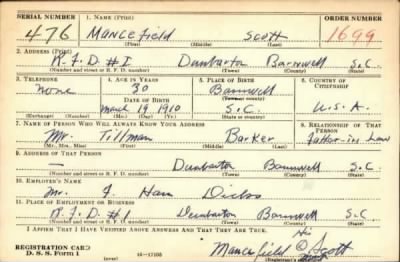 SERIAL NUMBER 1. NAME (Print) ORDER NUMBER
476 Mancefield Scott 1699
(First) (Middle) (Last)
2. ADDRESS (Print)
R.F.D #1 Dunbarton Barnwell S.C.
(Number and street or R. F. D. number) (Town) (County) (State)
3. TELEPHONE 4. AGE IN YEARS 5. PLACE OF BIRTH 6. COUNTRY OF CITIZENSHIP
none 30 Barnwell
DATE OF BIRTH (Town or county)
March 18 1910 S.C. U.S.A.
(Exchange) (Number) (Mo.) (Day) (Yr.) (State or country)
7. NAME OF PERSON WHO WILL ALWAYS KNOW YOUR ADDRESS 8. RELATIONSHIP OF THAT PERSON
Mr. Tillman Barker Father-in Law
(Mr., Mrs., Miss) (First) (Middle) (Last)
9. ADDRESS OF THAT PERSON
— Dunbarton Barnwell S.C.
(Number and street or R. F. D. number) (Town) (County) (State)
10. EMPLOYER'S NAME
Mr. J. Ham Dicks
11. PLACE OF EMPLOYMENT OR BUSINESS
R.F.D #1 Dunbarton Barnwell S.C.
(Number and street or R. F. D. number) (Town) (County) (State)
I AFFIRM THAT I HAVE VERIFIED ABOVE ANSWERS AND THAT THEY ARE TRUE.
His
REGISTRATION CARD Mancefield Scott
D. S. S. Form 1 16-17105 mark